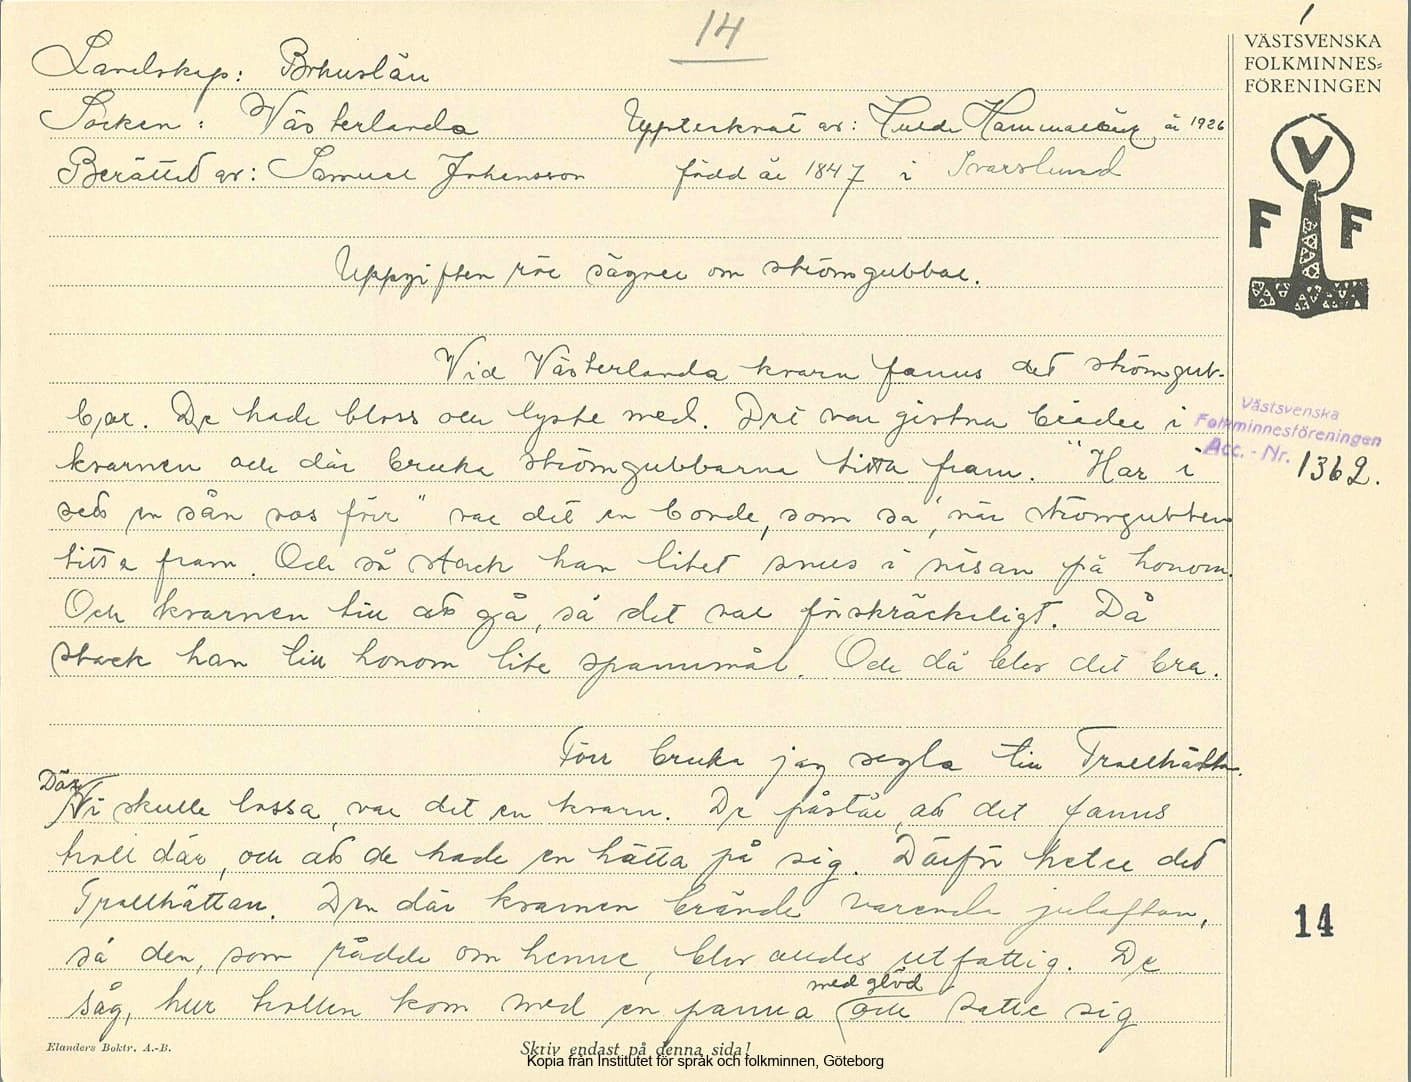 14
VÄSTSVENSKA
FOLKMINNES=
FÖRENINGEN
Landskap: Bohuslän
Socken: Västerlanda Upptecknat av: Hulda Hammarbäck år 1926
Berättat av: Samuel Johansson född år 1847 i Ivarslund
V
F F
Uppgiften rör sägner om strömgubbar.
Vid Västerlanda kvarn fanns det strömgub-
bar. De hade bloss och lyste med. Det var gistna bräder i
kvarnen och där bruka strömgubbarna titta fram. "Har i
sett en sån nos förr" var det en bonde, som sa, när strömgubben
titta fram. Och så stack han litet snus i näsan på honom.
Och kvarnen till att gå, så det var förskräckeligt. Då
stack han till honom lite spannmål. Och då blev det bra.
Västsvenska
Folkminnesföreningen
Acc. - Nr. 1362.
Förr bruka jag segla till Trollhättan.
Där vi skulle lossa, var det en kvarn. De påstår, att det fanns
troll där, och att de hade en hätta på sig. Därför heter det
Trollhättan. Den där kvarnen brände varenda julafton,
så den, som rådde om henne, blev alldeles utfattig. De
såg, hur trollen kom med en panna med glöd och satte sig
14
Elanders Boktr. A.-B.
Skriv endast på denna sida!
Kopia från Institutet för språk och folkminnen, Göteborg